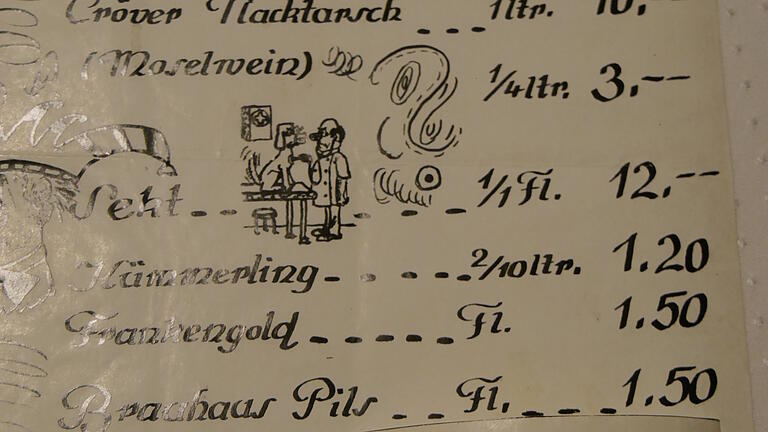 Cröver Nacktarsch ... 1 ltr. 10,--
(Moselwein) 1/4 ltr. 3,--
Sekt.. - - - - 1/1 Fl. 12,--
Kümmerling - - - - - 2/10 ltr. 1.20
Frankengold - - - - - Fl. 1.50
Brauhaus Pils - - Fl. - - - - 1.50